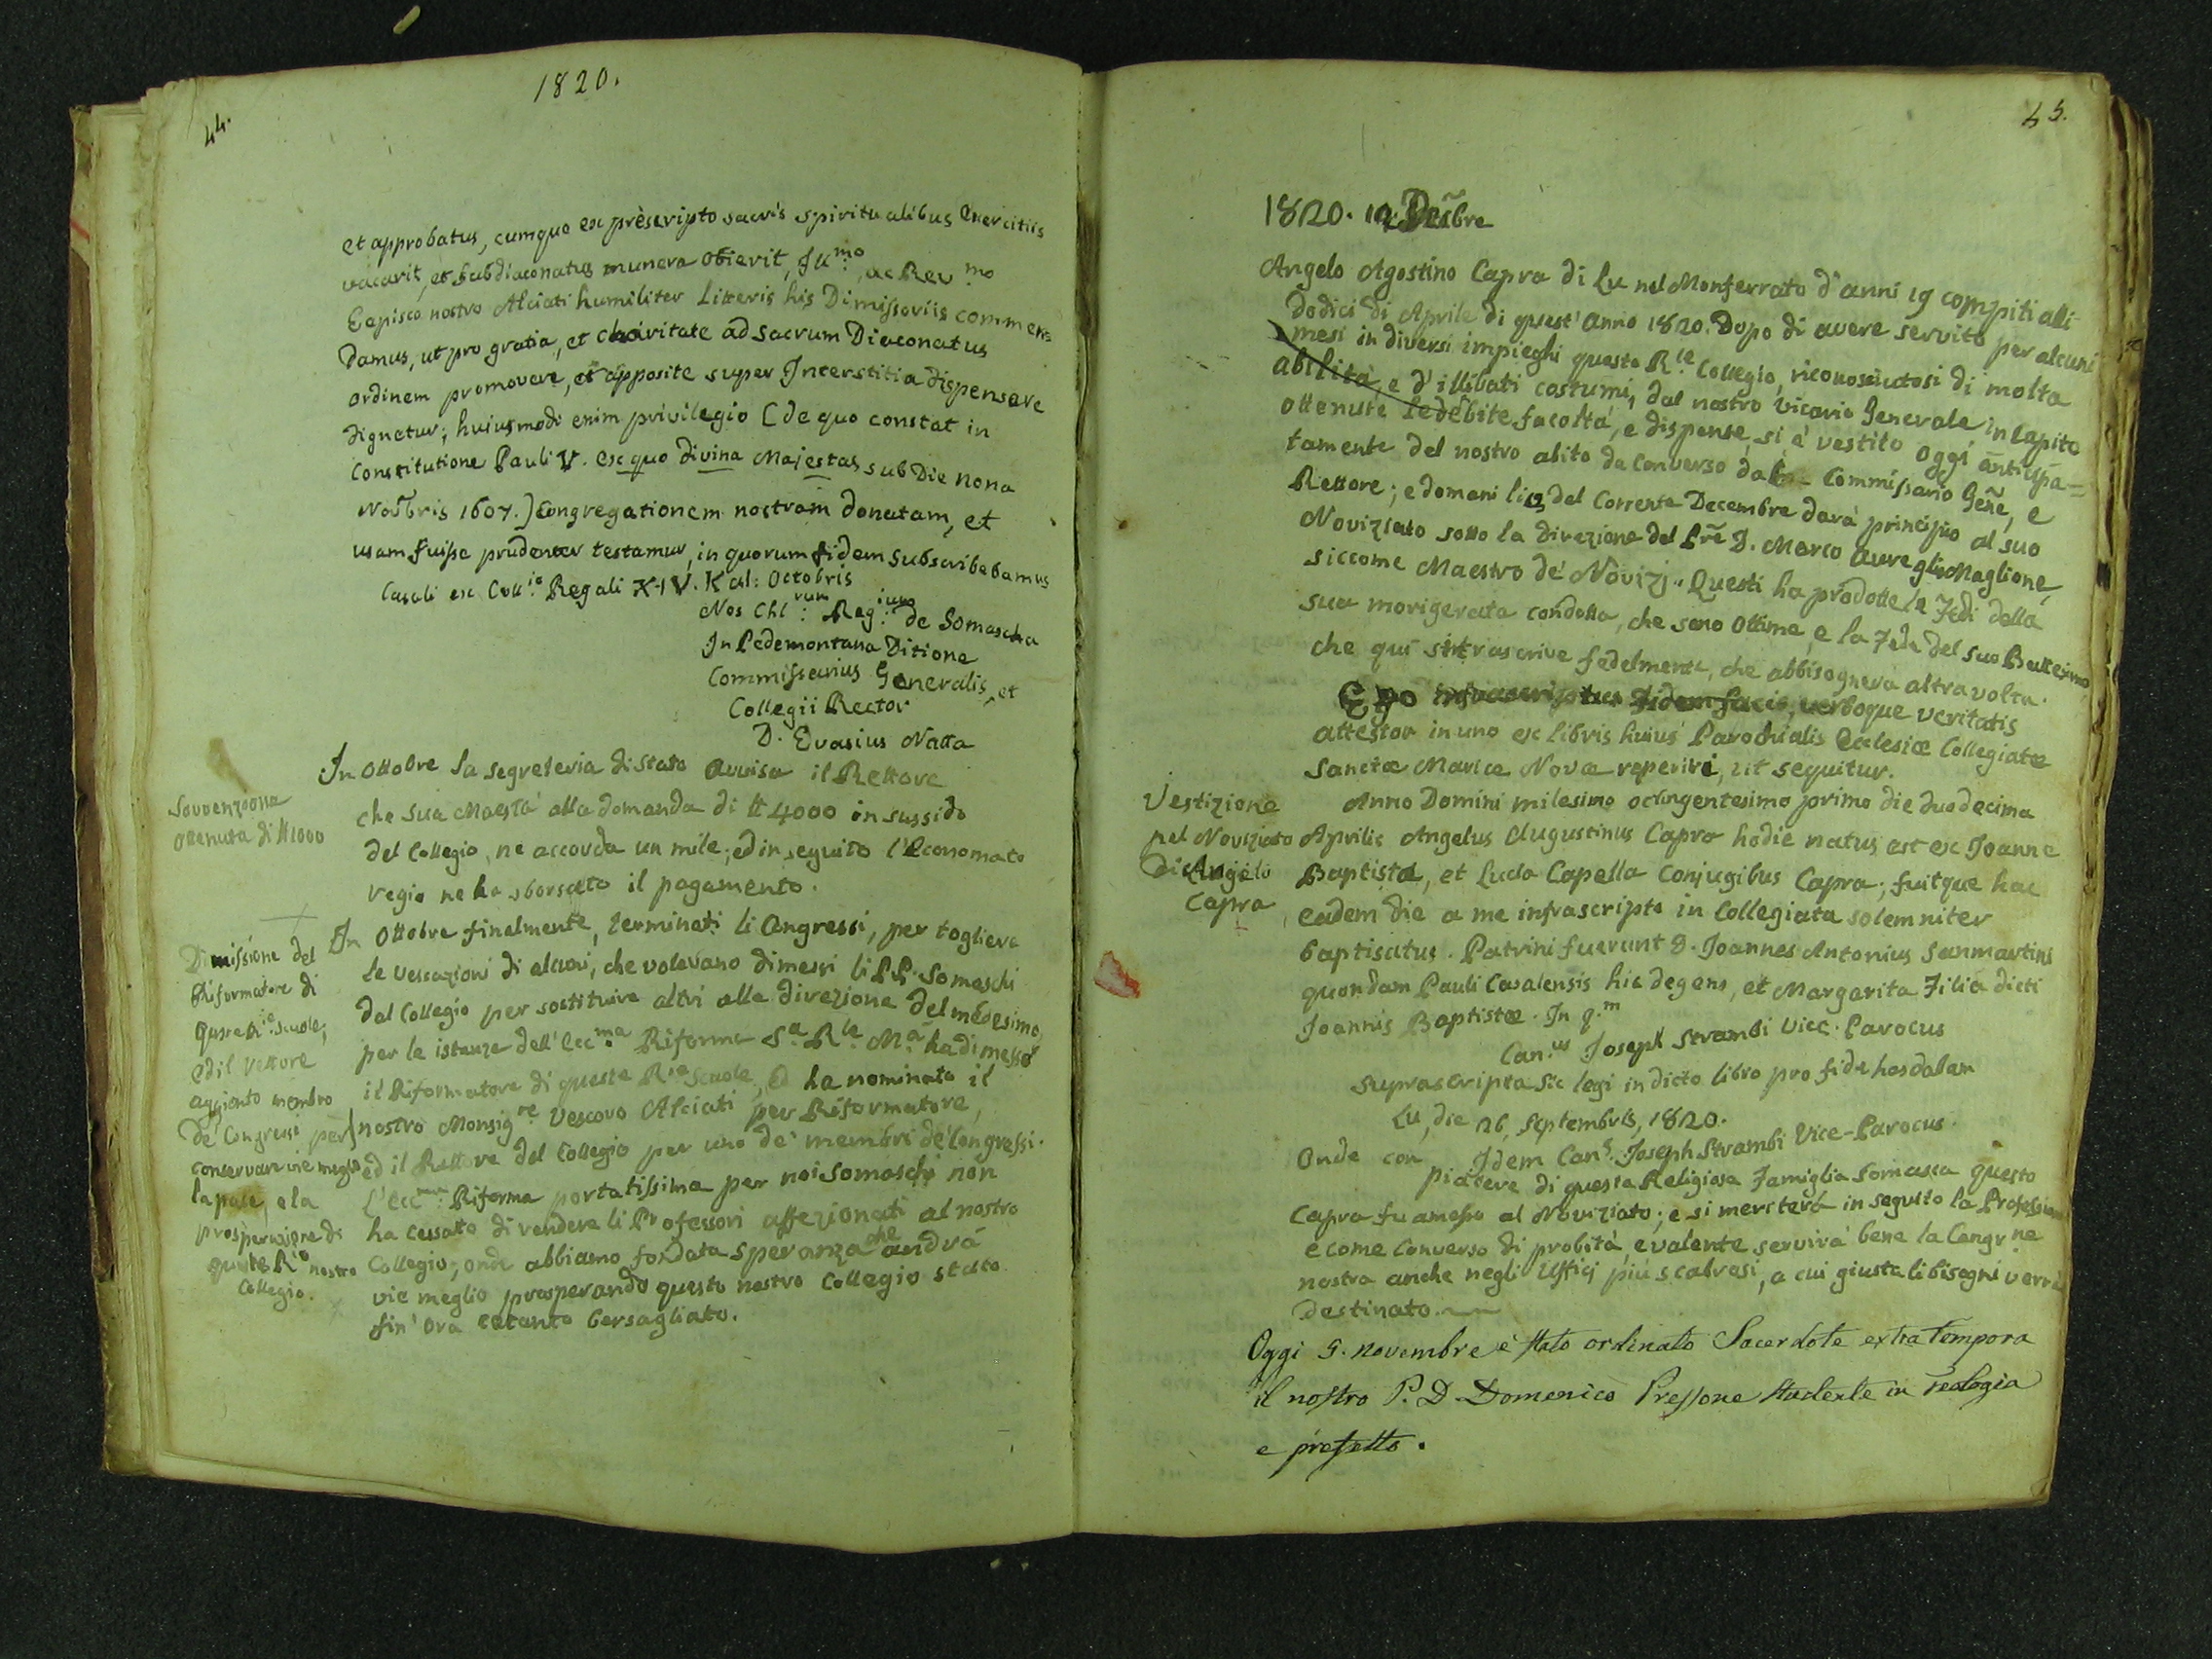 1820.
44.
et approbatus, cumque ex prèscripto sacris spiritualibus Exercitiis
vacavit, et Subdiaconatus munera obierit, Ill.mo, ac Rev.mo
Episco nostro Alciati humiliter Litteris his Dimissoriis commen=
damus, ut pro gratia, et charitate ad sacrum Diaconatus
ordinem promovere, et apposite super Interstitia dispensare
dignetur; huiusmodi enim privilegio (de quo constat in
Constitutione Pauli V. ex quo divina Majestas sub Die nona
Nov̄bris 1607.) Congregationem nostram donatam, et
usam fuisse prudenter testamur, in quorum fidem subscribebamus
Casali ex Coll.io Regali XIV. Kal: Octobris
Nos Chl:rum Reg:ium de Somascha
In Pedemontana Ditione
Commissarius Generalis, et
Collegii Rector
D. Evasius Natta
In Ottobre la segreteria di stato avvisa il Rettore
che sua Maestà alla domanda di ₶ 4000 in sussido
del Collegio, ne accorda un mile; ed in seguito l'Economato
regio ne ha sborsato il pagamento.
Sovvenzione
ottenuta di ₶ 1000
In Ottobre finalmente, terminati li Congressi, per togliere
le vessazioni di alcuni, che volevano dimessi li PP. Somaschi
dal Collegio per sostituire altri alla direzione del medesimo,
per le istanze dell'Ecc.ma Riforma S.a R.le M.à ha dimesso
il Riformatore di queste R.ie Scuole, ed ha nominato il
nostro Monsig.re Vescovo Alciati per Riformatore,
ed il Rettore del Collegio per uno de' membri de' Congressi.
L'Ecc.ma Riforma portatissima per noi Somaschi non
ha cessato di rendere li Professori affezionati al nostro
Collegio; onde abbiamo fondata speranza che andrà
vie meglio prosperando questo nostro Collegio stato
fin'ora cotanto bersagliato.
Dimissione del
Riformatore di
queste R.ie Scuole,
ed il rettore
aggionto membro
de' Congressi per
conservare vie meglio
la pace, e la
prosperazione di
questo R.io nostro
Collegio.
45.
1820. 12 Dec̃bre
Angelo Agostino Capra di Lu nel Monferrato d'anni 19 compiti alli
dodici di Aprile di quest'anno 1820. Dopo di avere servito per alcuni
mesi in diversi impieghi questo R.le Collegio, riconosciutosi di molta
abilità, e d'illibati costumi, dal nostro Vicario Generale in capito
ottenute le debite facoltà, e dispense, si è vestito oggi anticipa=
tamente del nostro abito da Converso dal Commissario Gen̄e, e
Rettore; e domani li 13 del Corrente Decembre darà principio al suo
Noviziato sotto la direzione del Pr̄e D. Marco Aureglio Maglione,
siccome Maestro de' Novizj. Questi ha prodotte le Fedi della
sua morigerata condotta, che sono ottime, e la Fede del suo Battesimo
che quì si trascrive fedelmente, che abbisognerà altra volta.
Ego infrascriptus Fidem facio, verboque veritatis
attestor in uno ex libris huius Parochialis Ecclesiæ Collegiatæ
Sanctæ Mariæ Novæ reperiri, ut sequitur.
Anno Domini milesimo octingentesimo primo die duodecima
Aprilis Angelus Augustinus Capra hodie natus est ex Joanne
Baptista, et Lucia Capella Conjugibus Capra; fuitque hac
eadem die a me infrascripto in Collegiata solemniter
baptisatus. Patrini fuerunt D. Joannes Antonius Sanmartini
quondam Pauli Casalensis hic degens, et Margarita Filia dicti
Joannis Baptistæ. In q.m
Can.us Joseph Strambi Vice-Parocus
Suprascripta sic legi in dicto libro pro fide has dabam
Lu, die 26, Septembris, 1820.
Idem Can.s Joseph Strambi Vice-Parocus.
Onde con piacere di questa Religiosa Famiglia Somasca questo
Capra fu amesso al Noviziato; e si meriterà in seguito la Professione
e come Converso di probità, e valente servirà bene la Congr̄ne
nostra anche negli Uffici più scabrosi, a cui giusta li bisogni verrà
destinato.
Vestizione
nel Noviziato
di Angelo
Capra
Oggi 5. novembre è stato ordinato Sacerdote extra tempora
il nostro P. D. Domenico Pressone studente in teologia
e prefetto.